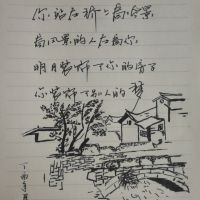 你站在桥上看风景
看风景的人在看你
明月装饰了你的窗子
你装饰了别人的梦
丁酉